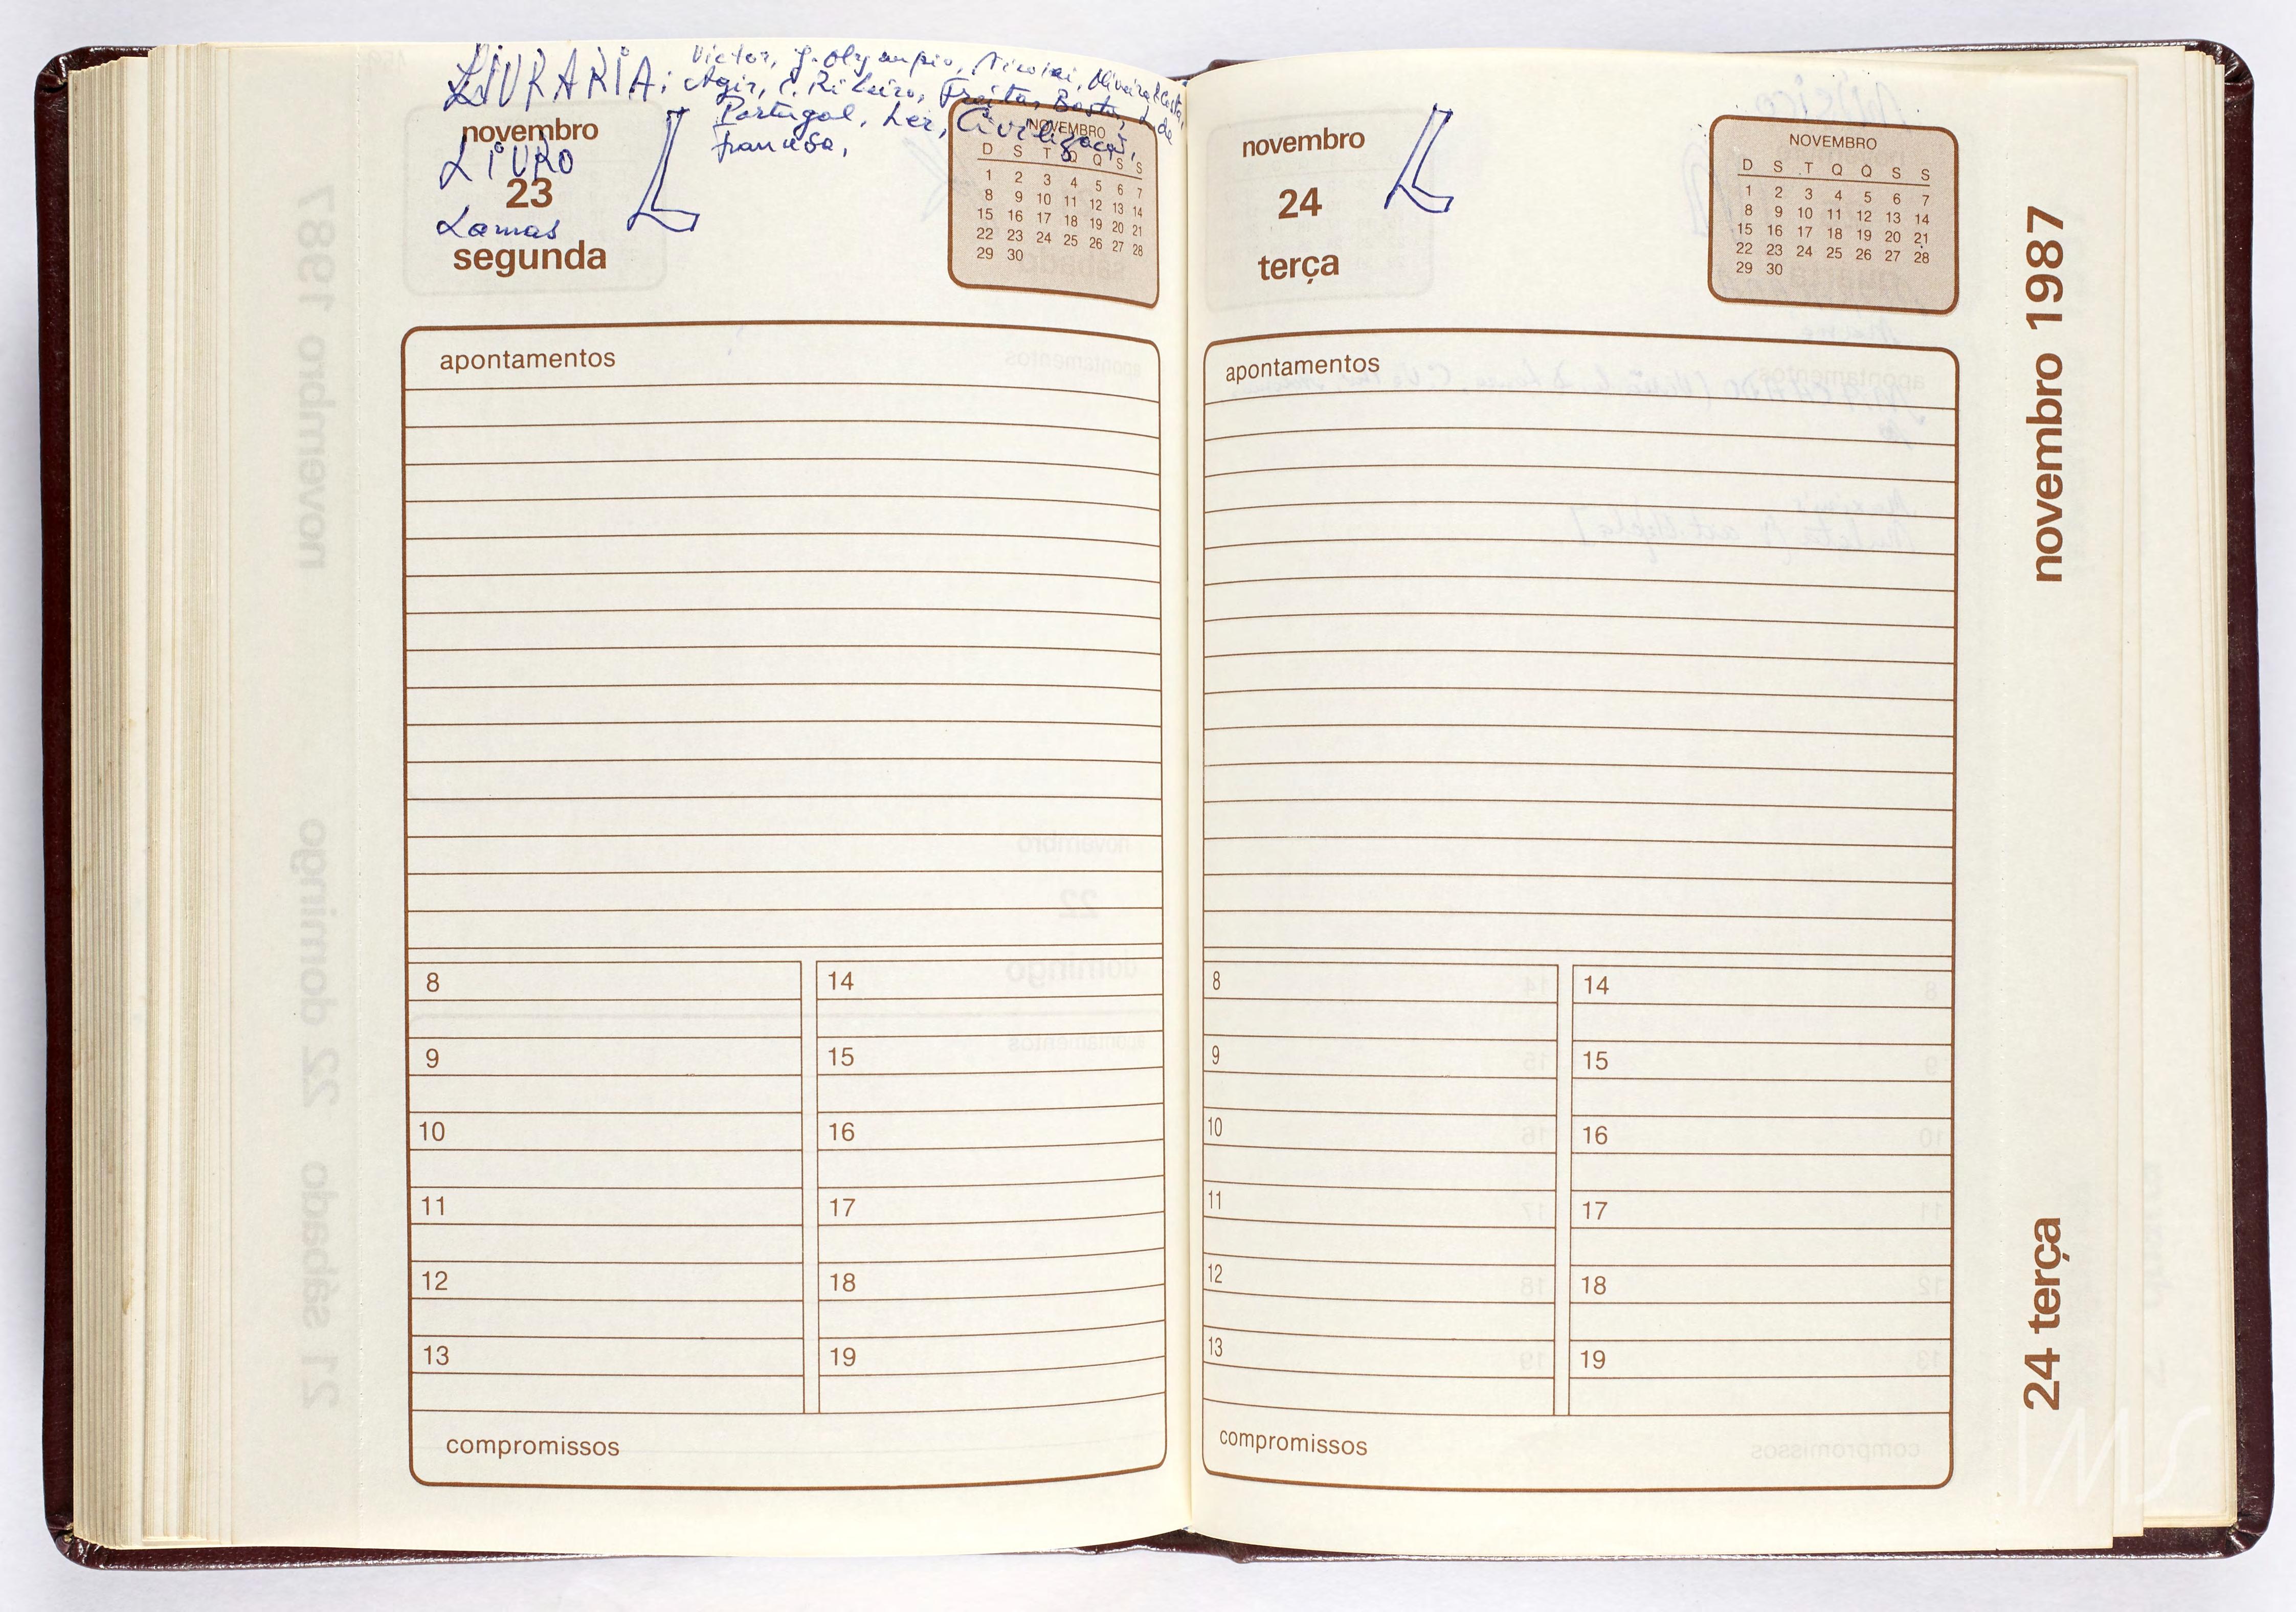 LIVRARIA: Victor, J. Olympio, Nicolai, Oliveira & Costa,
Agir, C. Ribeiro, Freitas Bastos, L. da
Portugal, Ler, Civilização,
francesa,
novembro
LIVRO
23
Lamas
segunda
L
NOVEMBRO
D S T Q Q S S
1 2 3 4 5 6 7
8 9 10 11 12 13 14
15 16 17 18 19 20 21
22 23 24 25 26 27 28
29 30
apontamentos
8 14
9 15
10 16
11 17
12 18
13 19
compromissos
novembro
24
terça
L
NOVEMBRO
D S T Q Q S S
1 2 3 4 5 6 7
8 9 10 11 12 13 14
15 16 17 18 19 20 21
22 23 24 25 26 27 28
29 30
apontamentos
8 14
9 15
10 16
11 17
12 18
13 19
compromissos
novembro 1987
24 terça
IMS